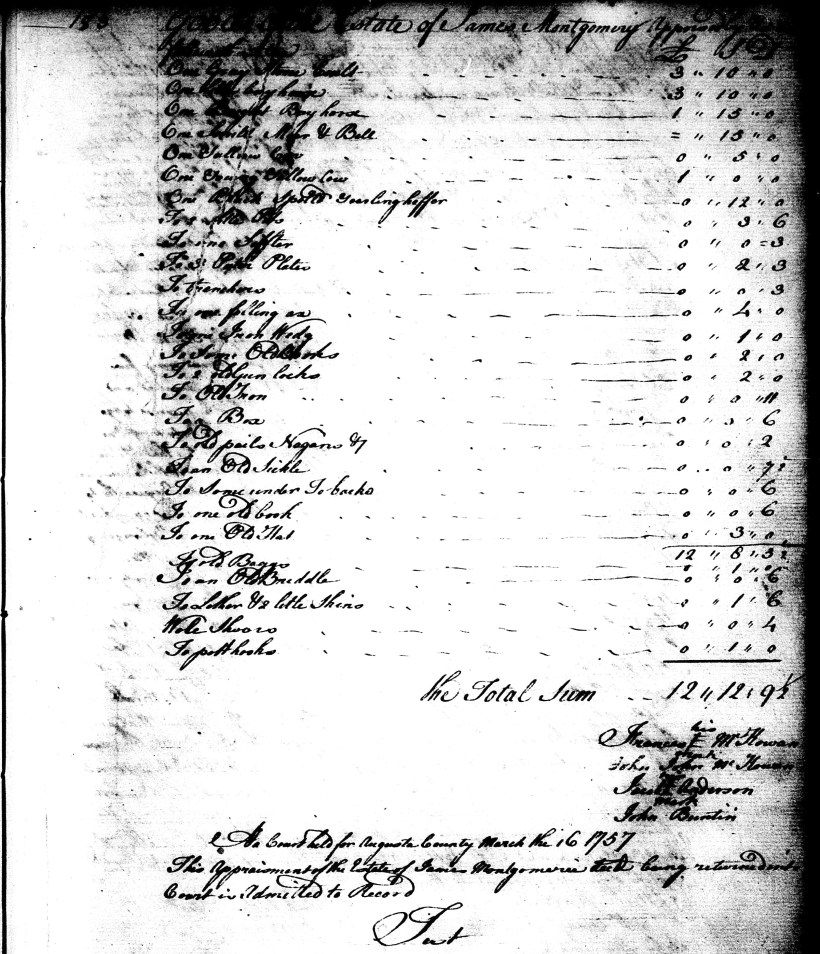 Estate of James Montgomery
£ S D
One Gray 3 " 10 " 0
One horse 3 " 10 " 0
One Bay horse 1 " 15 " 0
One Mear & Bell = " 15 " 0
One Cow 0 " 5 " 0
One Young Yellow Cow 1 " 0 " 0
One Black heffer 0 " 12 " 0
To 0 " 3 " 6
To one Sifter 0 " 0 = 3
To 3 Plates 0 " 2 " 3
To trenchers 0 " 0 " 3
To one falling ax 0 " 4 " 0
To Iron Wedg 0 " 1 " 0
To Some Old Books 0 " 2 " 0
To 2 old Gun locks 0 " 2 " 0
To Old Iron 0 " 0 " 11
To a Box 0 " 3 " 6
To old pails Nagans & 0 " 0 " 2
To an Old Sickle 0 " 0 " 7½
To Some under To backo 0 " 0 " 6
To one old book 0 " 0 " 6
To one Old Hat 0 " 3 " 0
12 " 8 " 5½
To old Baggs 0 " 1 " 0
To an Old Briddle 0 " 0 " 6
To Lether & 2 letle Skins 0 " 1 " 6
Wole Shears 0 " 0 " 4
To pott hooks 0 " 1 " 0
the Total Sum 12 " 12 " 9½
his
Frances F McKowan
mark
John McKowan
Anderson
mark
John Buntin
At a Court held for Auguste County March the 16 1757
This Appraisment of the Estate of James Montgomerie decd being returned into
Court is Admitted to Record
Test